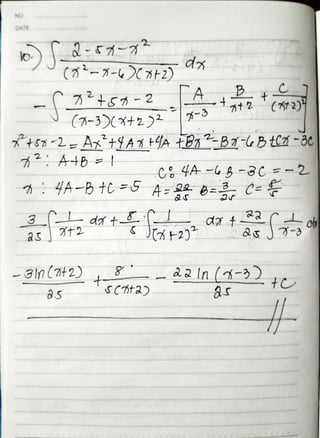 NO.
DATE
10.) ∫ 2-5x-x² / (x²-x-6)(x+2) dx
-∫ x²+5x-2 / (x-3)(x+2)² = [A/x-3 + B/x+2 + C/(x+2)²]
x²+5x-2 = Ax²+4Ax+4A+Bx²-Bx-6B+Cx-3C
x²: A+B=1
C: 4A-6B-3C=-2
x: 4A-B+C=5 A=22/25 B=3/25 C=8/5
3/25 ∫ 1/x+2 dx + 8/5 ∫ 1/(x+2)² dx + 22/25 ∫ 1/x-3 dx
-3ln(x+2)/25 + 8/5(x+2) - 22ln(x-3)/25 + C